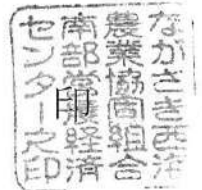 ながさき西海
農業協同組合
南部営農経済
センター之印
印